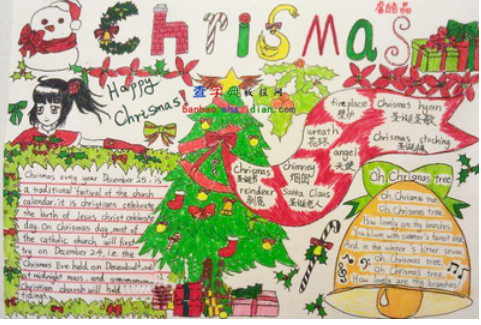 Chrismas
Happy
Chrismas!
查字典板报网
banbao.chazidian.com
fireplace
壁炉
Chrismas hymn
圣诞圣歌
wreath
花环
angel
天使
Chrismas stocking
圣诞袜
Chrismas
圣诞树
chimney
reindeer
驯鹿
Santa Claus
圣诞老人
Chrismas evey year December 25, is
a traditional festival of the church
calendar. it is christians celebrate
the birth of Jesus christ celebrate
day. On Chrismas day, most of
the catholic church will first
try on December 24, i.e. the
Chrismas Eve held on December
at midnight mass, and some
Christian church will hold
tidings.
Oh Chrismas tree
Oh, Chrismas tree
Oh, Chrismas tree,
How lovely are thy branches
You bloom with summer's forest
And in the winter's bitter snow
Oh, Chrismas tree
Oh, Chrismas tree
How lovely are thy branches!